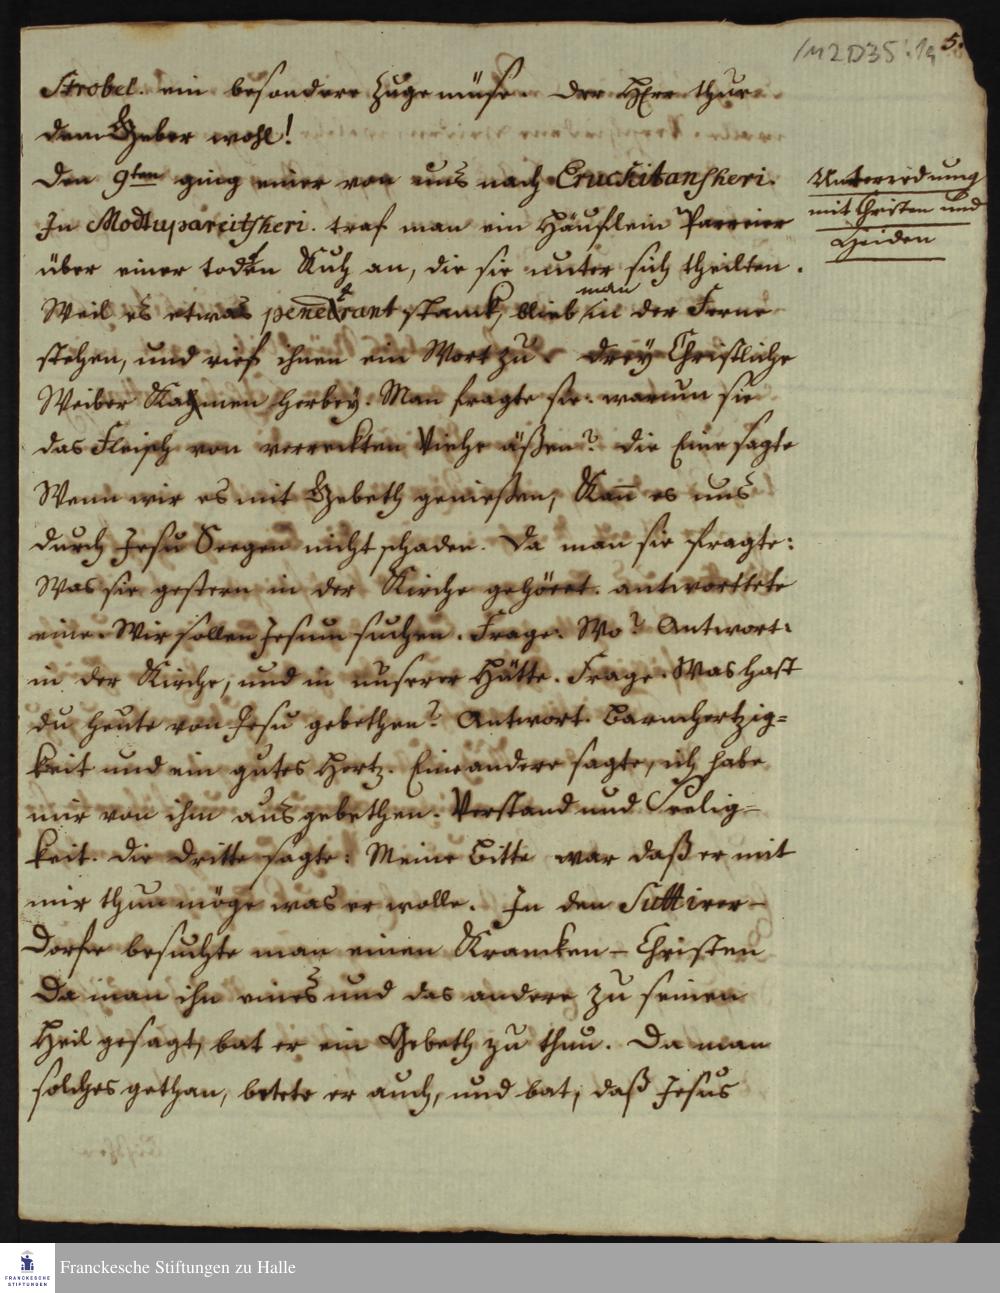 1M2D35:19
5.
Strobel. ein besondere Zugemüse. Der Herr thue
dem Geber wohl!
Den 9ten ging einer von uns nach Cruckitansheri.
In Modtupareitsheri. traf man ein Häuflein Parreier
über einer todten Kuh an, die sie unter sich theilten.
Weil es etwas penetrant stanck, blieb man in der Ferne
stehen, und rief ihnen ein Wort zu. Drey Christliche
Weiber Kahmen herbey. Man fragte sie: warum sie
das Fleisch von verreckten Viehe äßen? die Eine sagte
Wenn wir es mit Gebeth genießen, Kan̄ es uns
durch Jesu Seegen nicht schaden. Da man sie fragte:
Was sie gestern in der Kirche gehöret. antworttete
eine. Wir sollen Jesum suchen. Frage: Wo? Antwort:
in der Kirche, und in unserer Hütte. Frage. Was hast
du heute von Jesu gebethen? Antwort. Barmhertzig=
keit und ein gutes Hertz. Eine andere sagte, ich habe
mir von ihm ausgebethen. Verstand und Seelig=
keit. die dritte sagte: Meine Bitte war daß er mit
mir thun möge was er wolle. In den Suttirer-
Dorfe besuchte man einen Krancken-Christen
Da man ihn eines und das andere zu seinen
Heil gesagt, bat er ein Gebeth zu thun. Da man
solches gethan, betete er auch, und bat, daß Jesus
Unterredung
mit Christen und
Heiden
FRANCKESCHE
STIFTUNGEN
Franckesche Stiftungen zu Halle